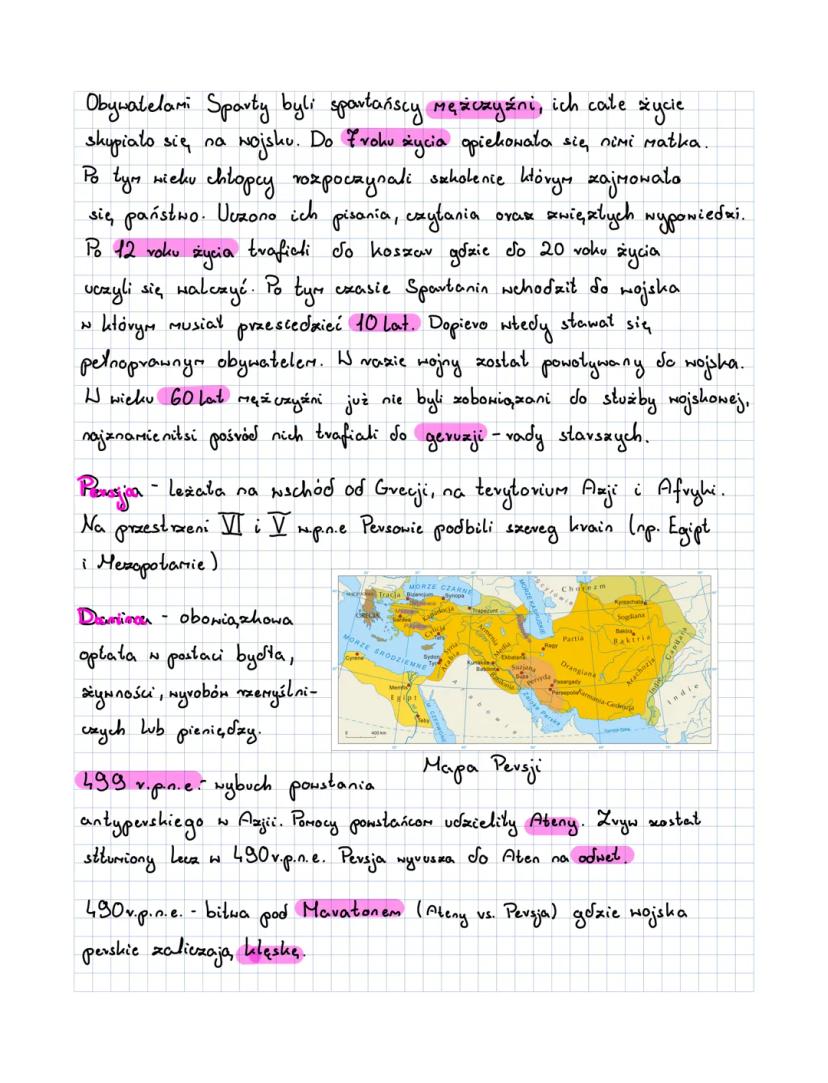 Obywatelami Sparty byli spartańscy mężczyźni, ich całe życie
skupiało się na wojsku. Do 7 roku życia opiekowała się nimi matka.
Po tym wieku chłopcy rozpoczynali szkolenie którym zajmowało
się państwo. Uczono ich pisania, czytania oraz zwięzłych wypowiedzi.
Po 12 roku życia trafiali do koszar gdzie do 20 roku życia
uczyli się walczyć. Po tym czasie Spartanin wchodził do wojska
w którym musiał przesiedzieć 10 lat. Dopiero wtedy stawał się
pełnoprawnym obywatelem. W razie wojny został powoływany do wojska.
W wieku 60 lat mężczyźni już nie byli zobowiązani do służby wojskowej,
najznamienitsi pośród nich trafiali do geruzji - rady starszych.
Persja - leżała na wschód od Grecji, na terytorium Azji i Afryki.
Na przestrzeni VI i V w.p.n.e Persowie podbili szereg krain (np. Egipt
i Mezopotamie)
Danina - obowiązkowa
opłata w postaci bydła,
żywności, wyrobów rzemyślni-
czych lub pieniędzy.
MORZE CZARNE
MORZE KASPIJSKIE
Chorezm
Tracja
Bizancjum
Synopa
Trapezunt
GRECJA
Kapadocja
Cylicja
Armenia
Media
Partia
Sogdiana
Baktra
Baktria
Kyreschata
MORZE ŚRÓDZIEMNE
Cyrene
Sydon
Tyr
Kunaksa
Babilon
Ekbatana
Ragy
Suzjana
Suza
Persyda
Pasargady
Persepolis
Drangiana
Arachozja
Gandara
Karmania-Gedrozja
Indie
Memfis
Egipt
Teby
Arabowie
Zatoka Perska
M. CZERWONE
0 400 km
Mapa Persji
499 r.p.n.e.- wybuch powstania
antyperskiego w Azjii. Pomocy powstańcom udzieliły Ateny. Zryw został
stłumiony lecz w 490 r.p.n.e. Persja wyrusza do Aten na odwet.
490 r.p.n.e. - bitwa pod Maratonem (Ateny vs. Persja) gdzie wojska
perskie zaliczają klęskę.